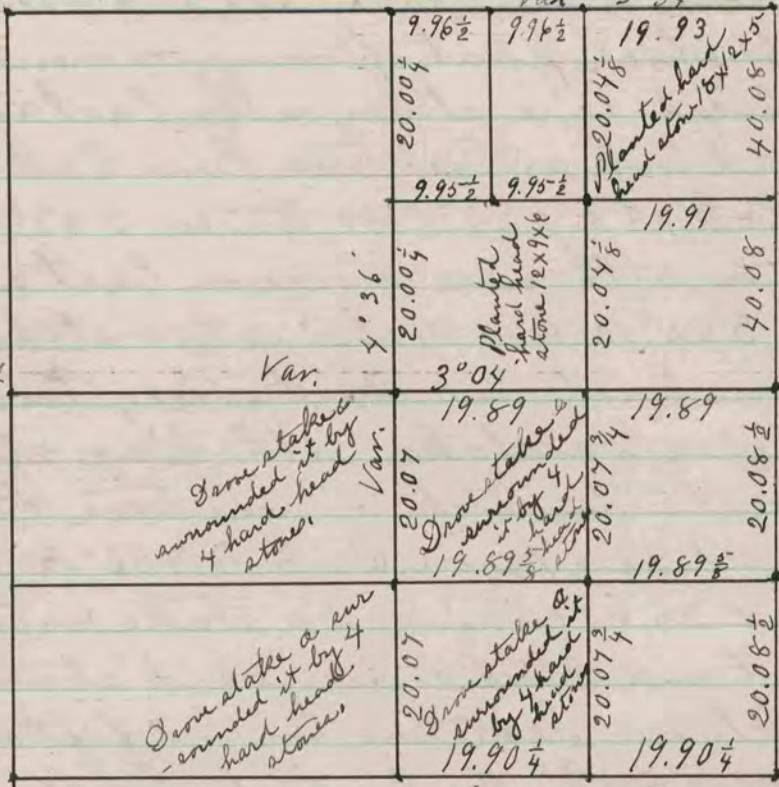 Var
9.96½ 9.96½ 19.93
20.00¼
20.04⅛
Planted hard
head stone 18x12x5
40.08
9.95½ 9.95½
19.91
4°36'
20.00¼
Planted
hard head
stone 12x9x6
20.04⅛
40.08
Var. 3°04'
19.89 19.89
Drove stake &
surrounded it by
4 hard head
stones.
Var.
20.07
Drove stake &
surrounded
it by 4
hard
head
stones
20.07¾
20.08½
19.89⅝ 19.89⅝
Drove stake & sur
-rounded it by 4
hard head
stones.
20.07
Drove stake &
surrounded it
by 4 hard
head
stones
20.07¾
20.08½
19.90¼ 19.90¼